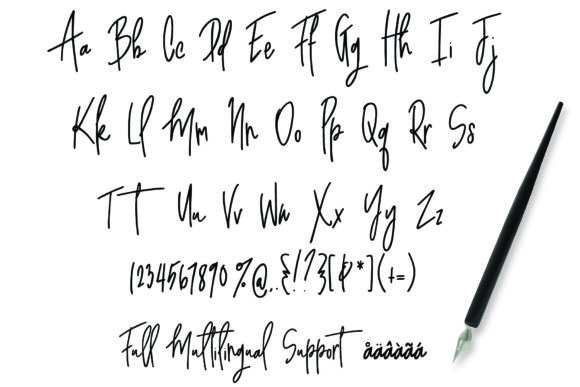 Aa Bb Cc Dd Ee Ff Gg Hh Ii Jj
Kk Ll Mm Nn Oo Pp Qq Rr Ss
Tt Uu Vv Ww Xx Yy Zz
1234567890%@..{!?}[&*](+=)
Full Multilingual Support åäâàãá